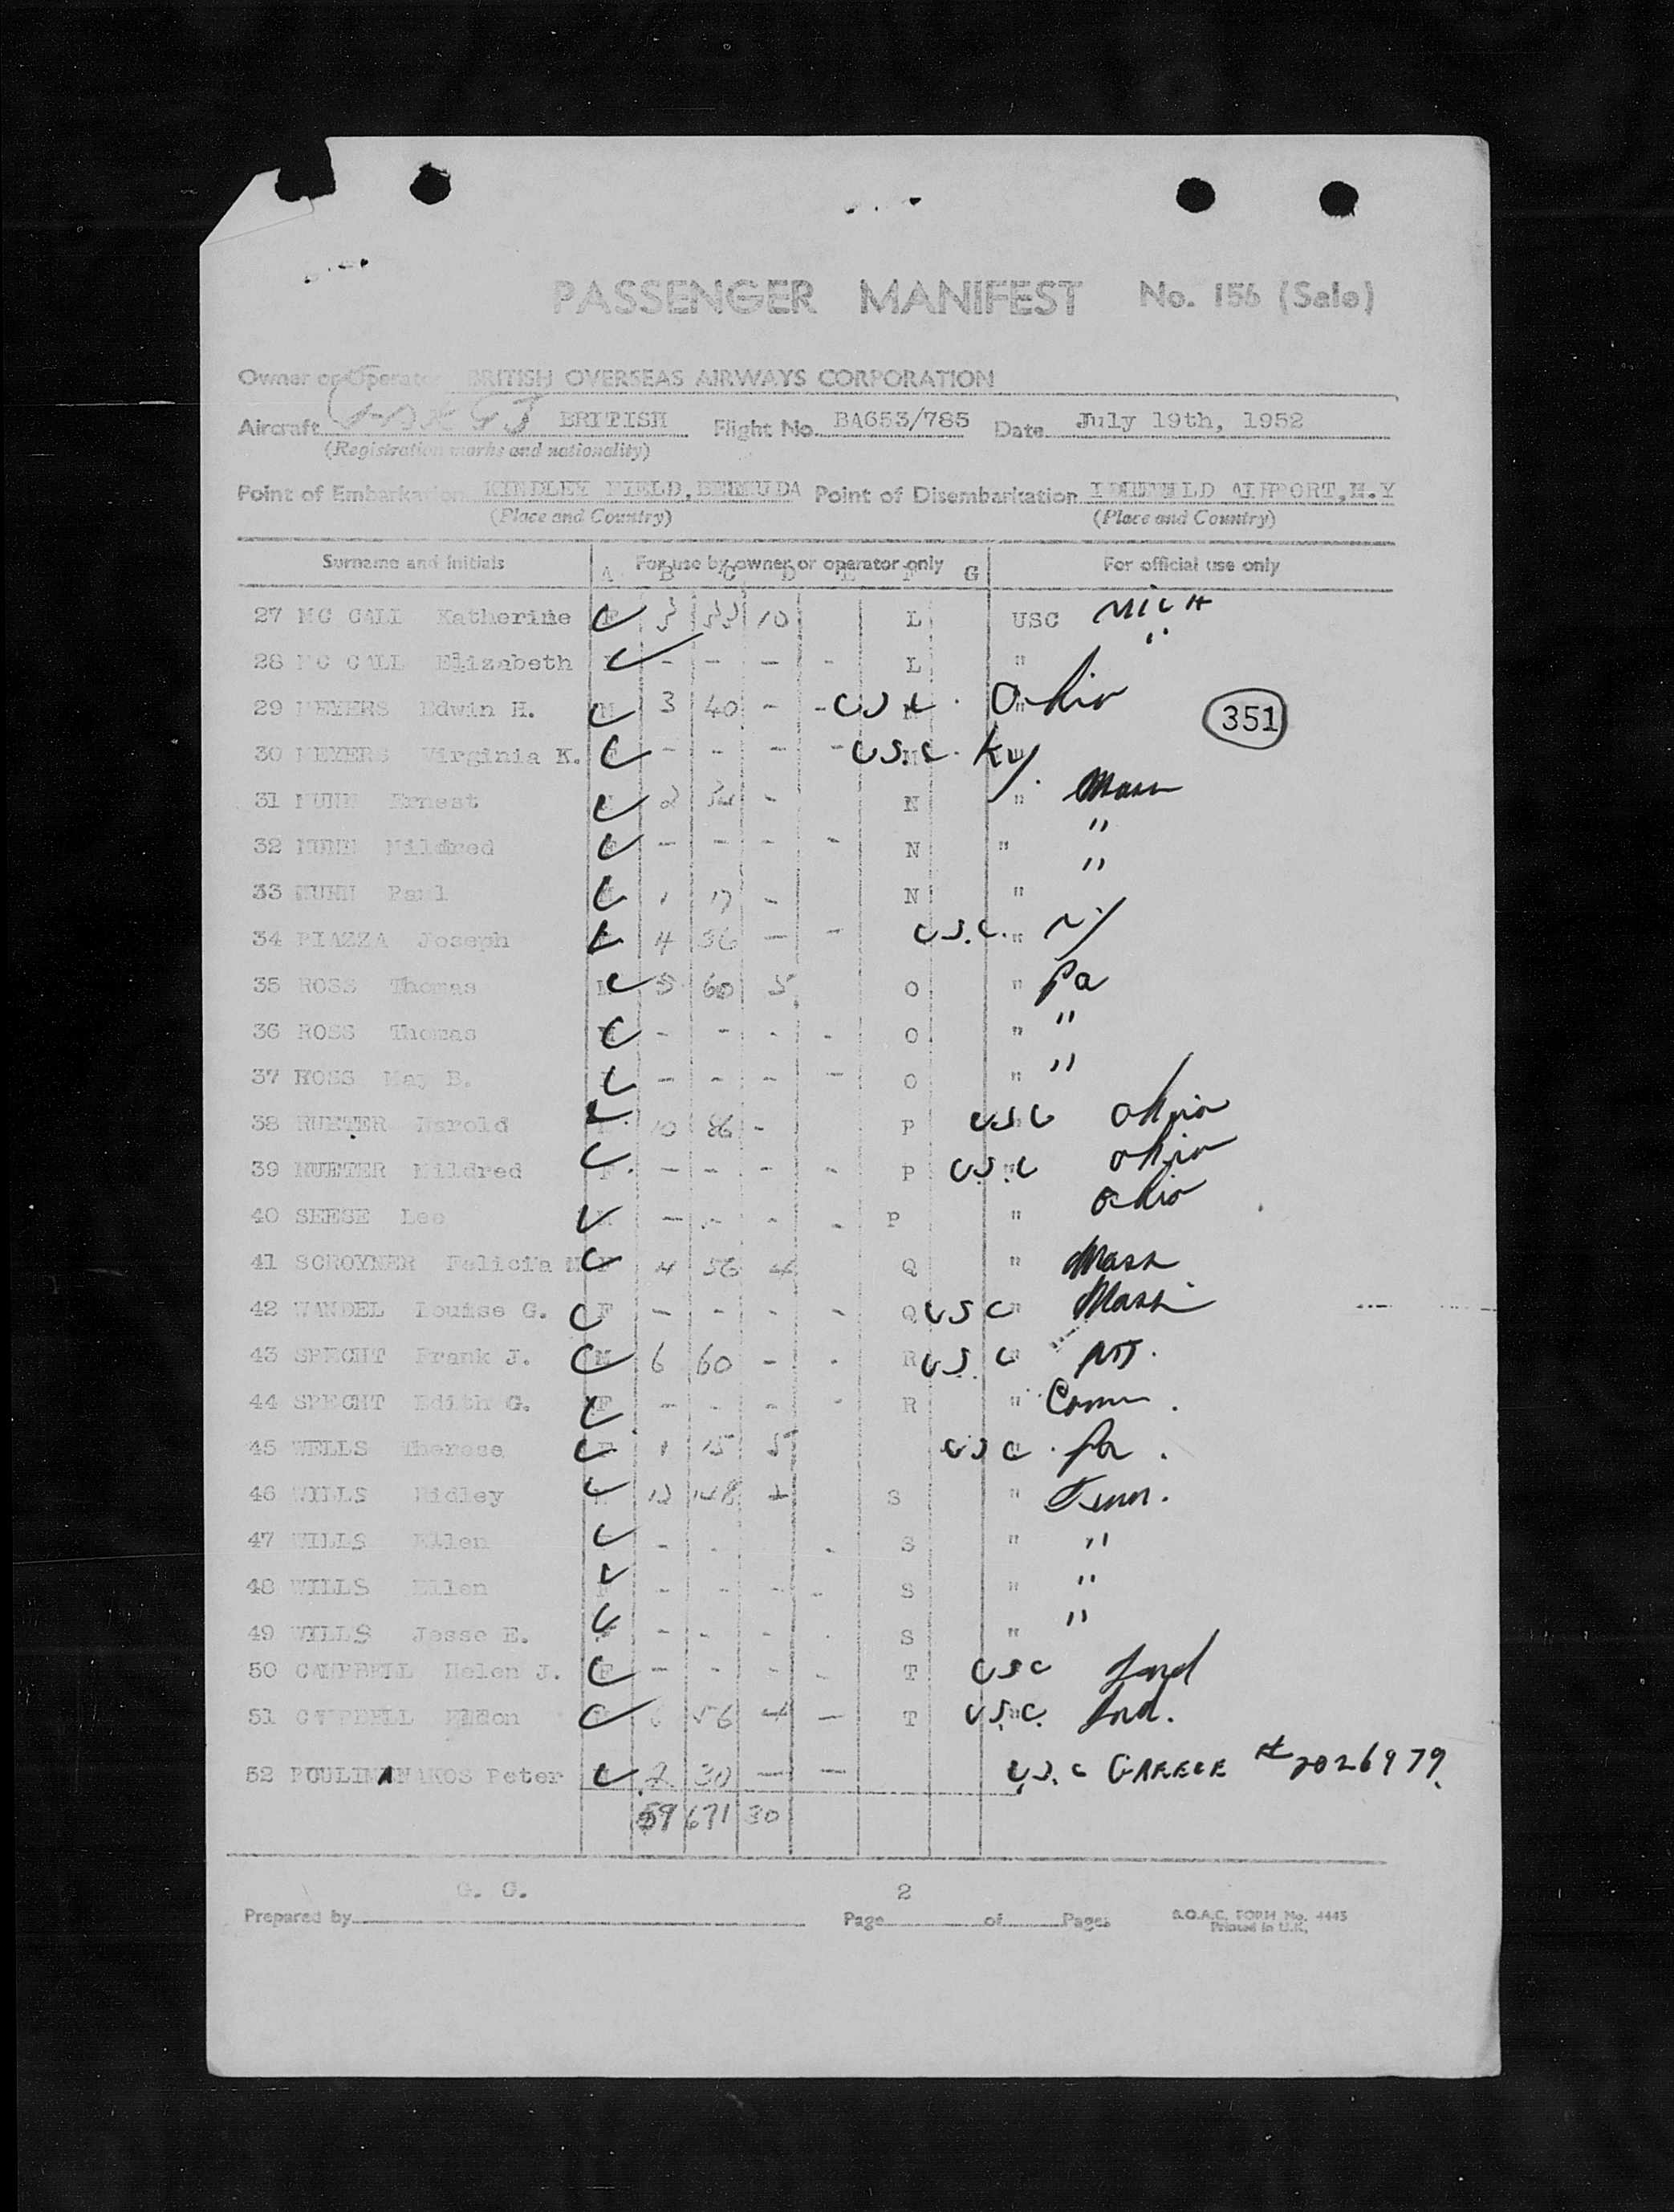 PASSENGER MANIFEST No. 156 (Sale)
Owner or Operator BRITISH OVERSEAS AIRWAYS CORPORATION
Aircraft BRITISH Flight No. BA653/785 Date July 19th, 1952
(Registration marks and nationality)
Point of Embarkation KINDLEY FIELD, BERMUDA Point of Disembarkation IDLEWILD AIRPORT, N.Y
(Place and Country) (Place and Country)
Surname and initials For use by owner or operator only For official use only
A B C D E F G
27 MC CALL Katherine F 3 53 10 L USC MICH
28 MC CALL Elizabeth - - - - L " "
29 MEYERS Edwin H. M 3 40 - - M USC. " Ohio
30 MEYERS Virginia K. F - - - - M U.S.C. Ky.
31 NUNN Ernest M 2 34 - N " Mass
32 NUNN Mildred F - - - - N " "
33 NUNN Paul 1 17 - N " "
34 PIAZZA Joseph 4 56 - - U.S.C. " NY
35 ROSS Thomas M 5 60 5 O " Pa
36 ROSS Thomas M - - - - O " "
37 ROSS May B. - - - - O " "
38 RUETER Harold 10 86 - P USC Ohio
39 RUETER Mildred F - - - - P USC " Ohio
40 SEESE Lee M - - - - P " Ohio
41 SCROYNER Felicia M F 4 56 4 Q " Mass
42 WANDEL Louise G. F - - - - Q USC " Mass
43 SPECHT Frank J. M 6 60 - - R USC " NJ.
44 SPECHT Edith G. F - - - - R " Conn.
45 WELLS Therese F 1 15 5 USC Pa.
46 WILLS Ridley 12 148 2 S " Tenn.
47 WILLS Ellen - - - S " "
48 WILLS Ellen F - - - - S " "
49 WILLS Jesse E. - - - - S " "
50 CAMPBELL Helen J. F - - - - T USC Ind
51 CAMPBELL Eldon 6 56 4 - T U.S.C. Ind.
52 POULIMANAKOS Peter 2 30 - - U.S.C GREECE # 2026979
351
59 671 30
G. G. 2
Prepared by Page of Pages B.O.A.C. FORM No. 4445
Printed in U.K.